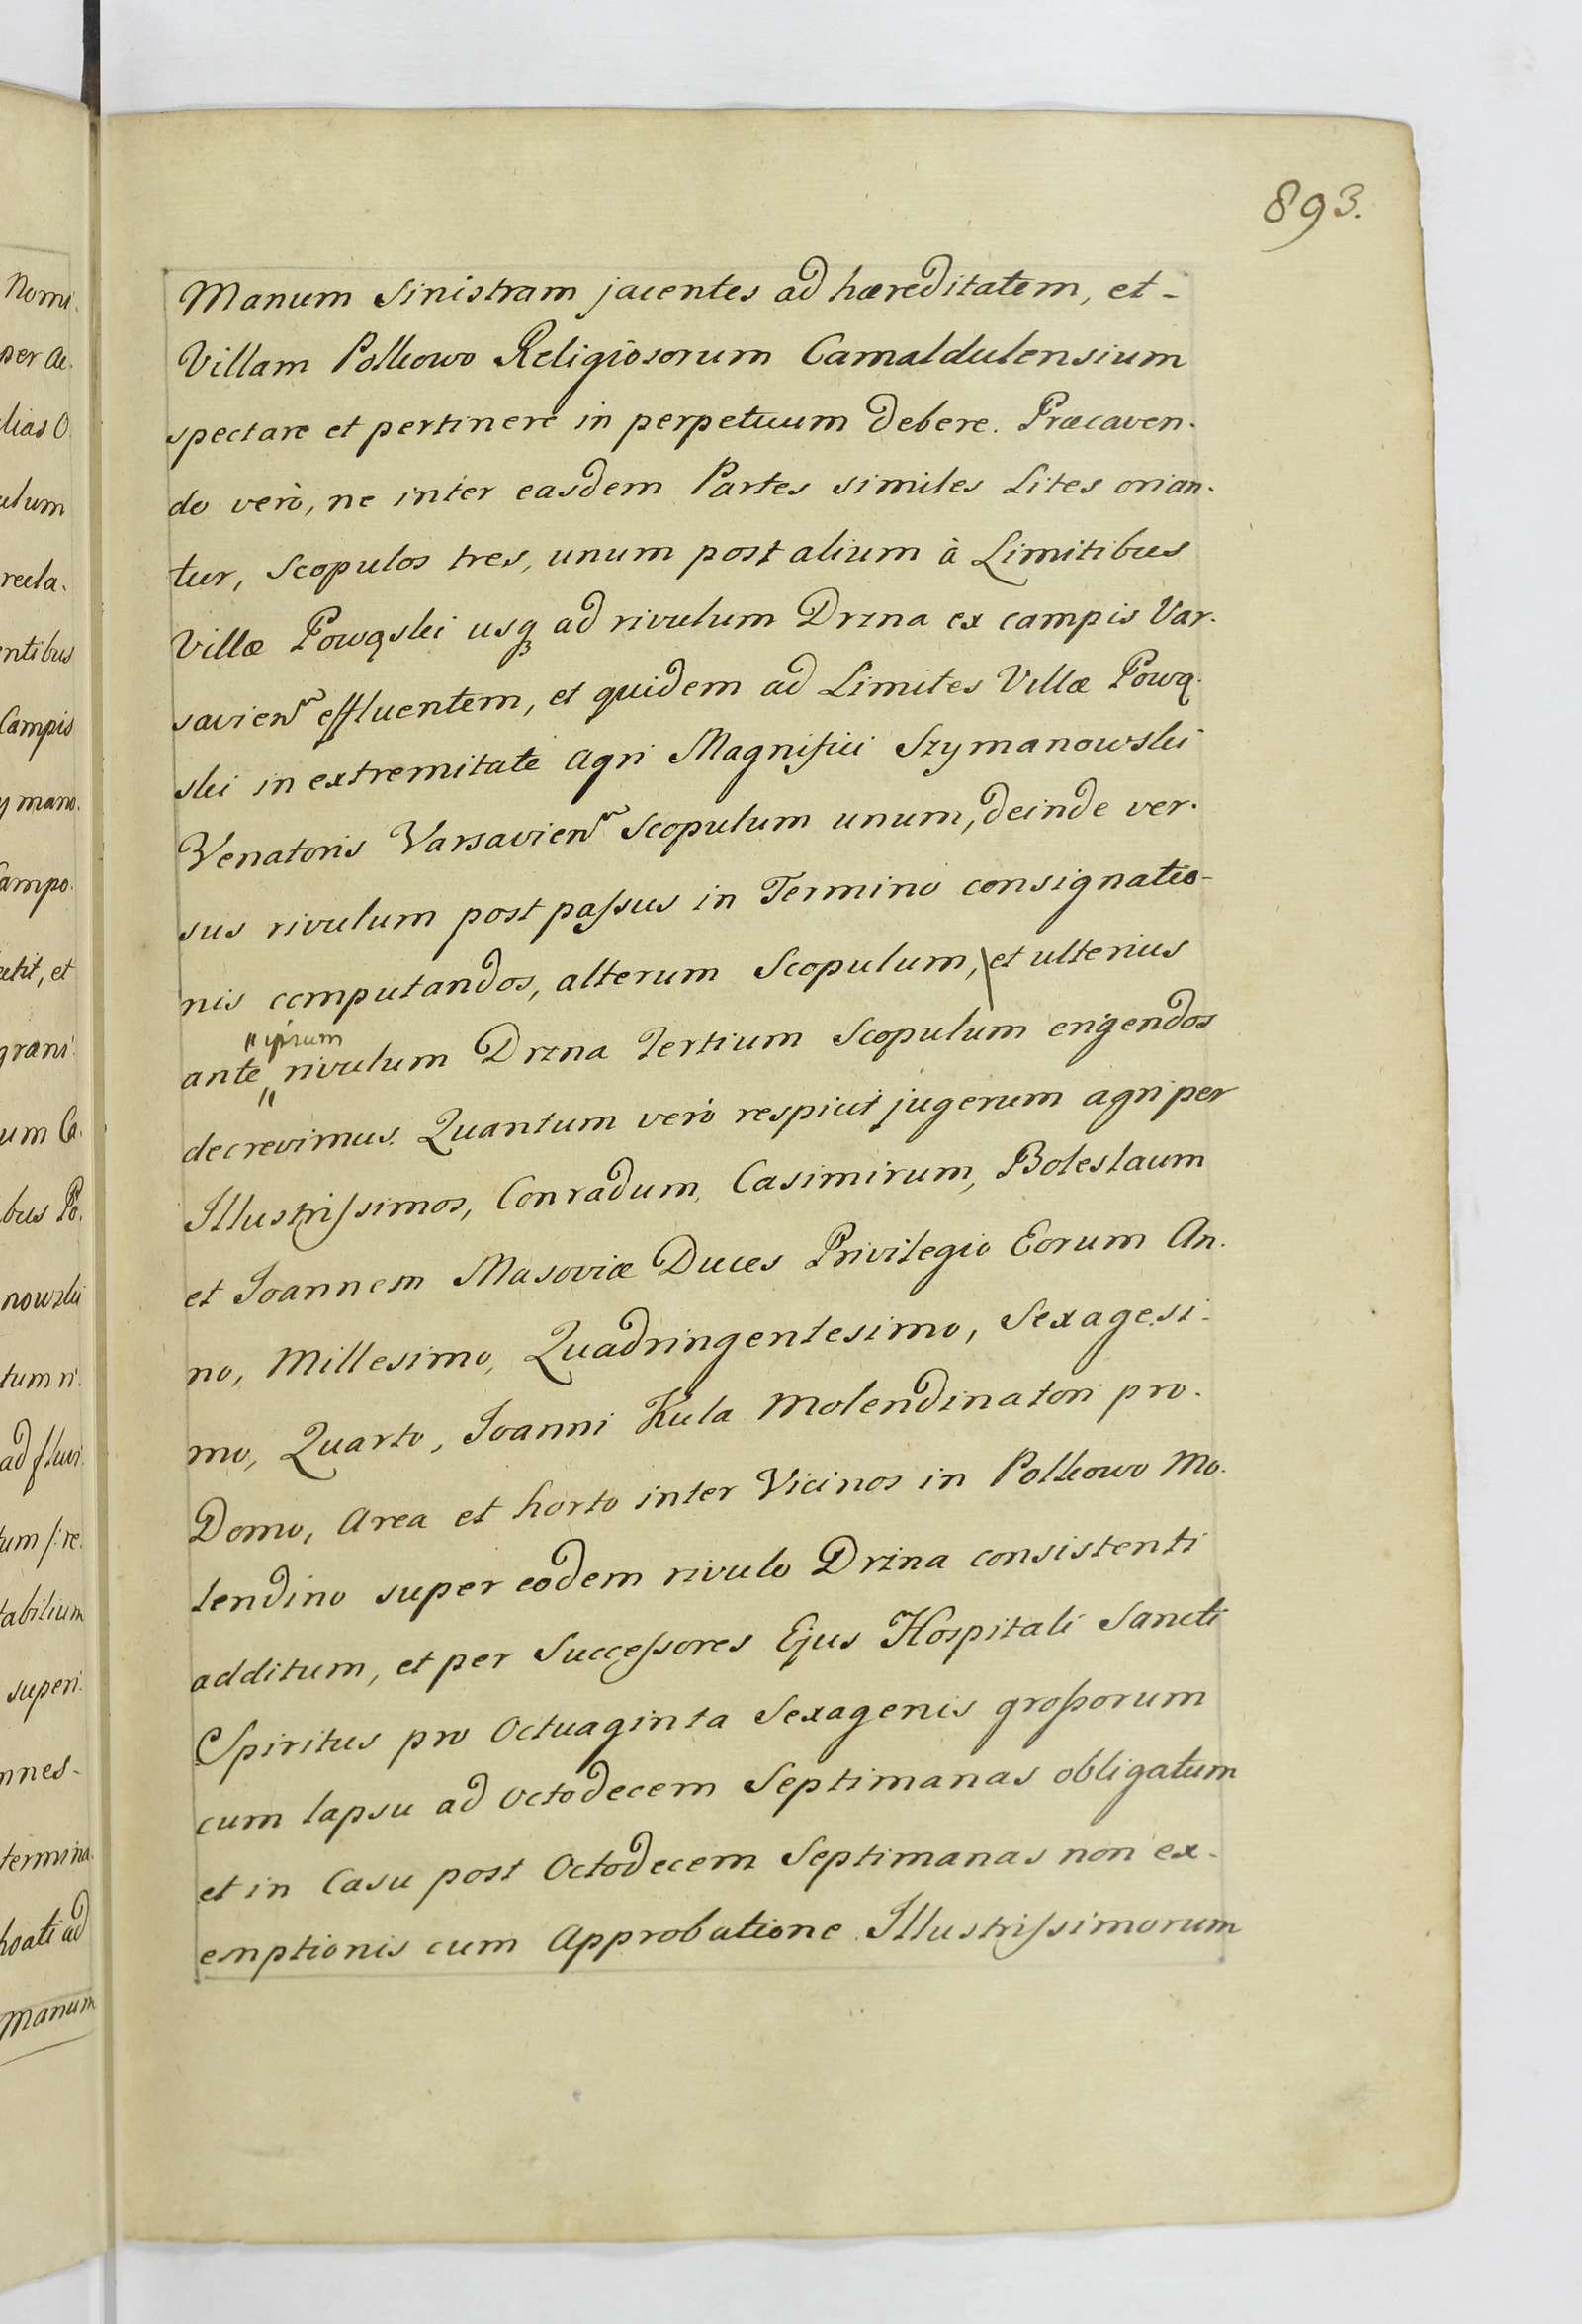 893.
Manum Sinistram jacentes ad hæreditatem, et-
Villam Polkowo Religiosorum Camaldulensium
spectare et pertinere in perpetuum debere. Præcaven-
do verò, ne inter easdem Partes similes Lites orian-
tur, Scopulos tres, unum post alium à Limitibus
Villæ Powąski usq3 ad rivulum Drzna ex campis Var-
savien~ effluentem, et quidem ad Limites Villæ Pową-
ski in extremitate Agri Magnifici Szymanowski
Venatoris Varsavien~ Scopulum unum, deinde ver-
sus rivulum post passus in Termino consignatio-
nis computandos, alterum Scopulum, et ulterius
"ipsum
ante " rivulum Drzna tertium Scopulum erigendos
decrevimus. Quantum verò respicit jugerum agri per
Illustrissimos, Conradum, Casimirum, Boleslaum
et Joannem Masoviæ Duces Privilegio Eorum An-
no, Millesimo, Quadringentesimo, Sexagesi-
mo, Quarto, Joanni Kula Molendinatori pro-
Domo, Area et horto inter Vicinos in Polkowo Mo-
lendino super eodem rivulo Drzna consistenti
additum, et per Successores Ejus Hospitali Sancti
Spiritus pro Octuaginta Sexagenis grossorum
cum lapsu ad octodecem Septimanas obligatum
et in Casu post Octodecem Septimanas non ex-
emptionis cum Approbatione Illustrissimorum
Nomi-
per Ae-
lias O-
ulum
recla-
entibus
Campis
ymano-
ampo-
et
grani-
um Ca-
bus Po-
nowski
tum ri-
ad fluvi-
um /: re-
tabilium
superi-
nnes-
termina-
hoati ad
Manum